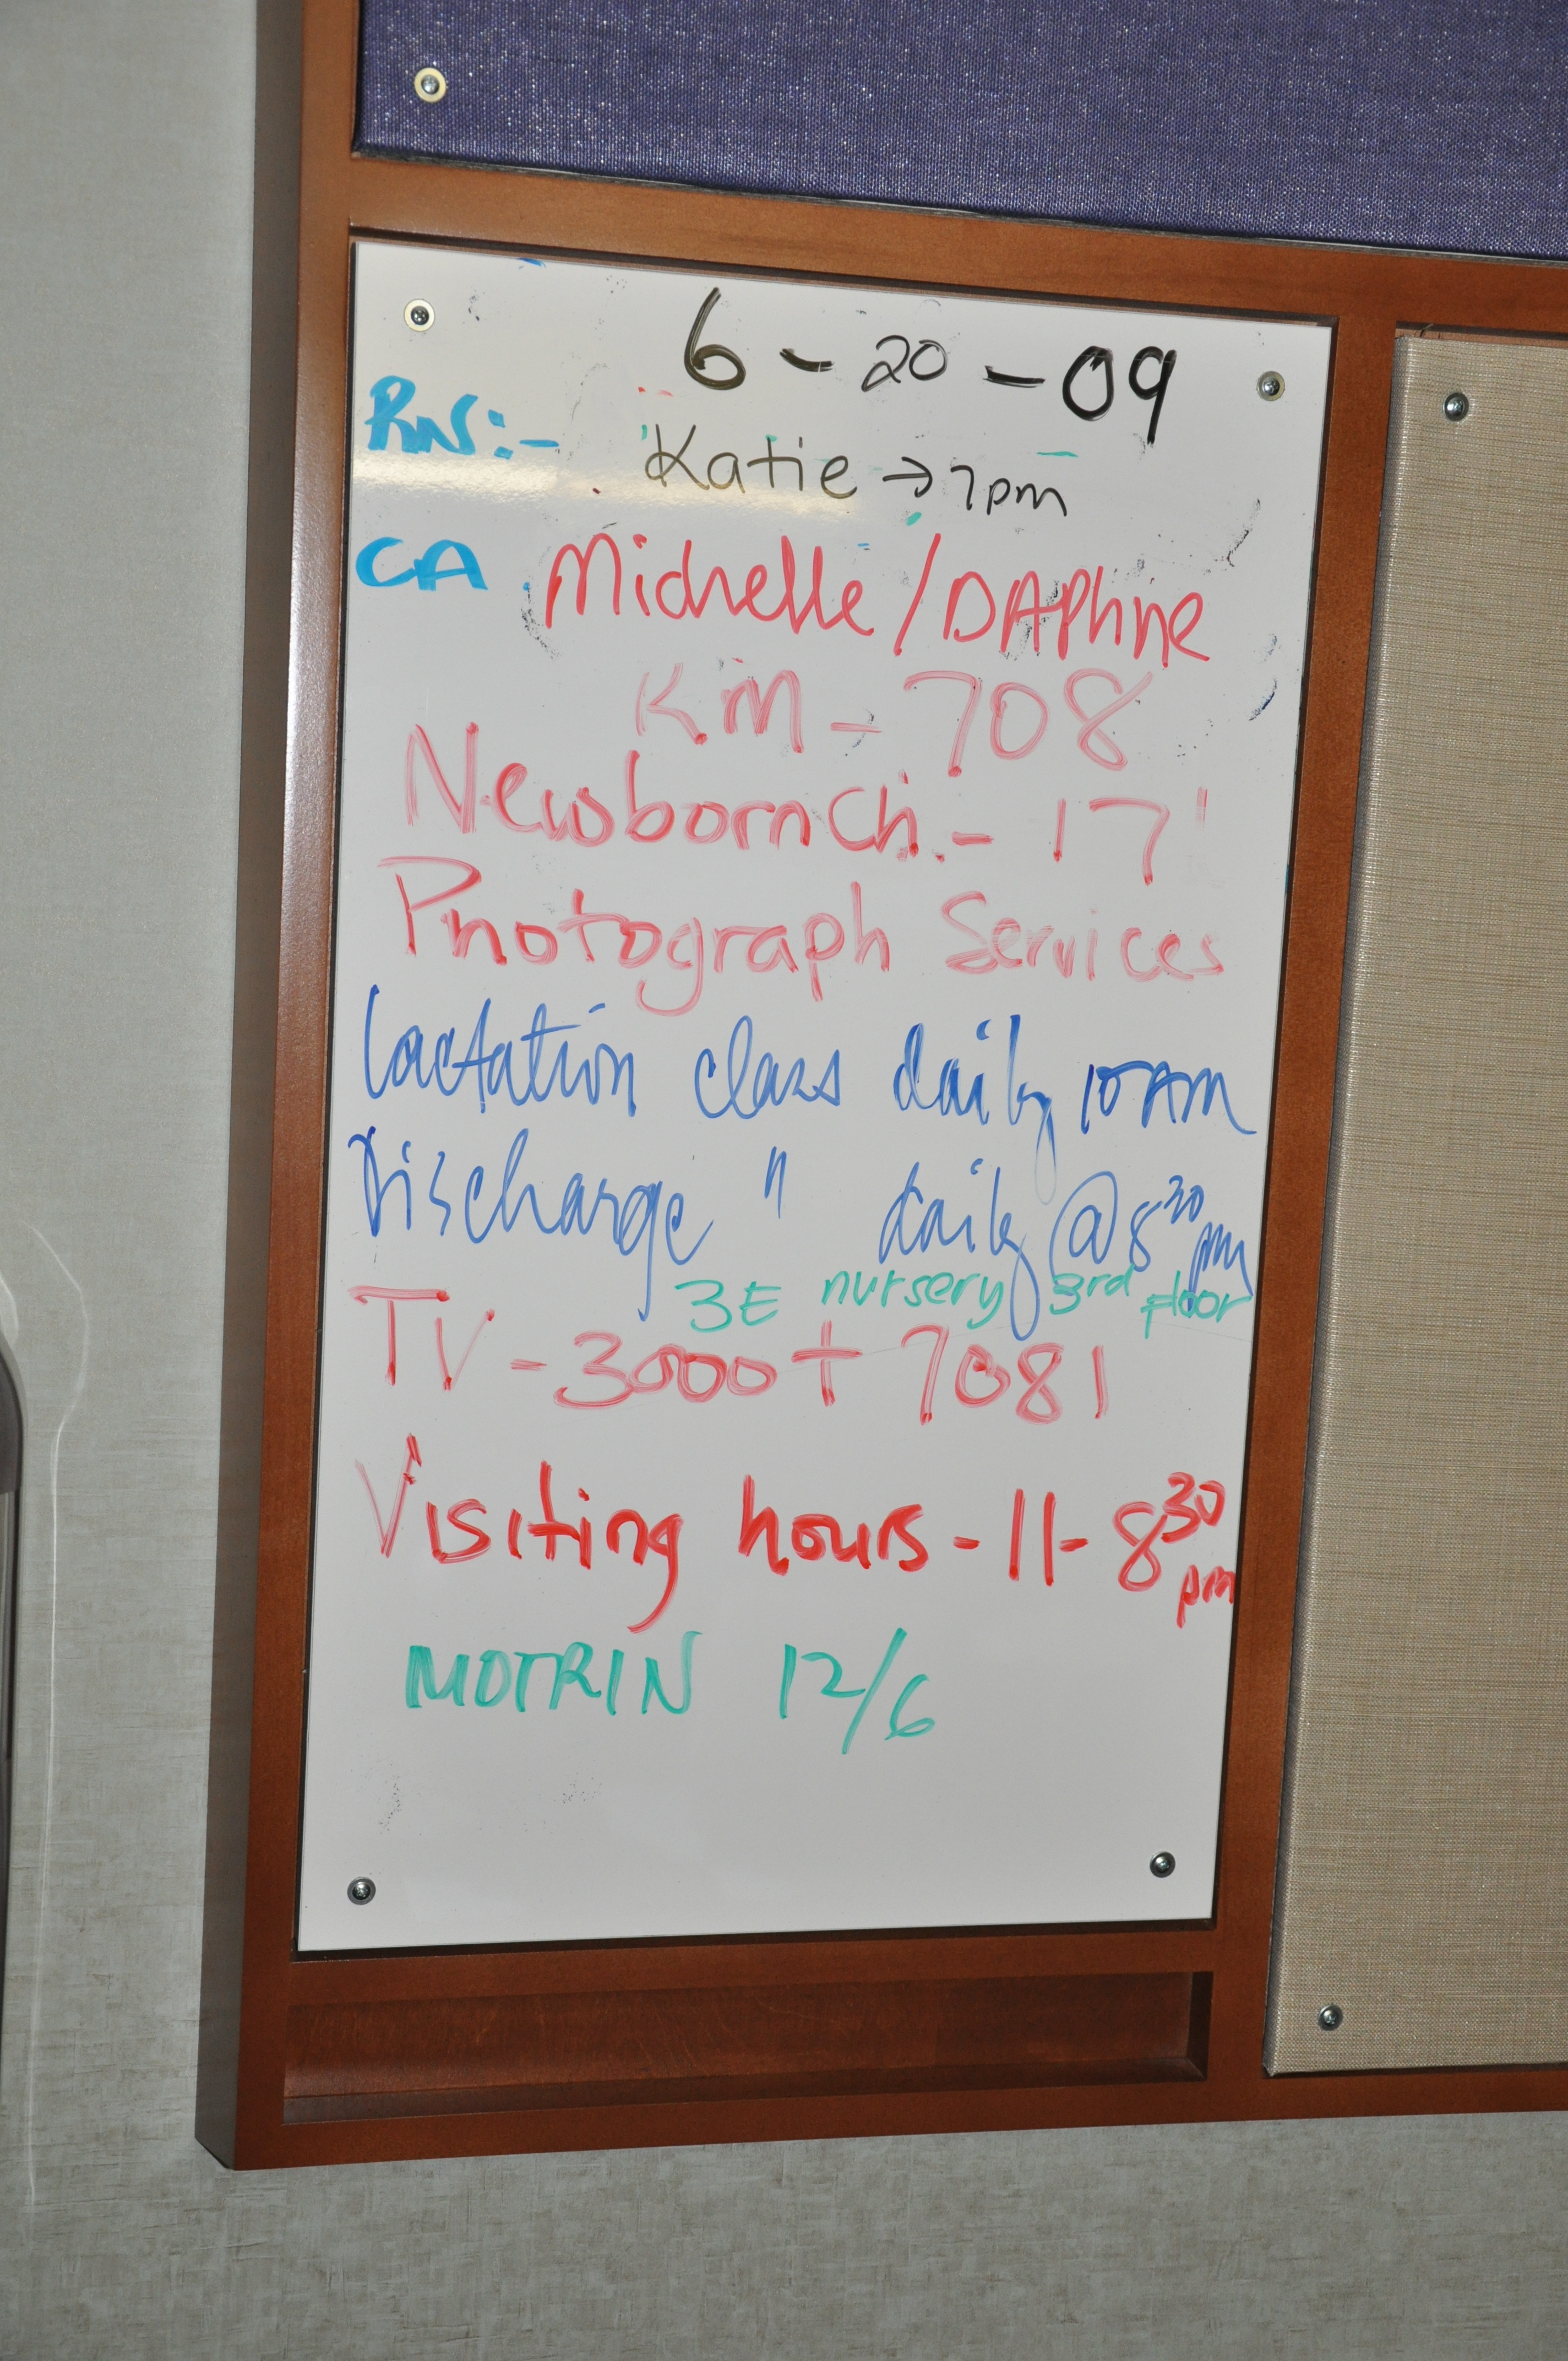 6 - 20 - 09
RN:- Katie → 7pm
CA. Michelle / DAPhne
RM - 708
Newborn Ch. - 17
Photograph Services
Lactation class daily 10 AM
Discharge " daily @ 8 30 pm
3E nursery 3rd Floor
TV - 3000 + 7081
Visiting hours - 11 - 8 30 pm
MOTRIN 12/6